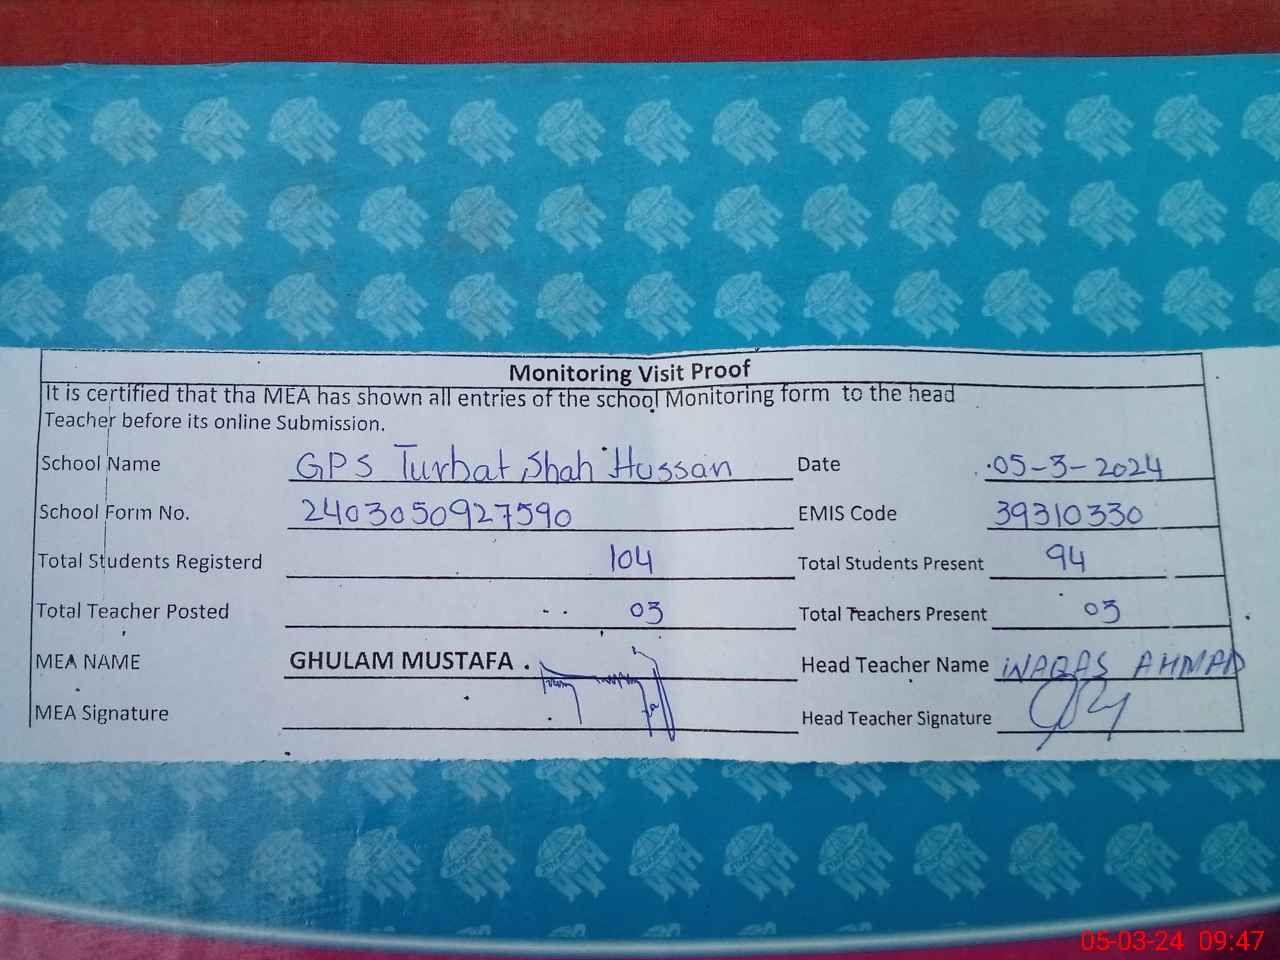 Monitoring Visit Proof
It is certified that tha MEA has shown all entries of the school Monitoring form to the head
Teacher before its online Submission.
School Name GPS Turbat Shah Hussan Date 05-3-2024
School Form No. 2403050927590 EMIS Code 39310330
Total Students Registerd 104 Total Students Present 94
Total Teacher Posted 03 Total Teachers Present 03
MEA NAME GHULAM MUSTAFA . Head Teacher Name WAQAS AHMAD
MEA Signature Head Teacher Signature
05-03-24 09:47